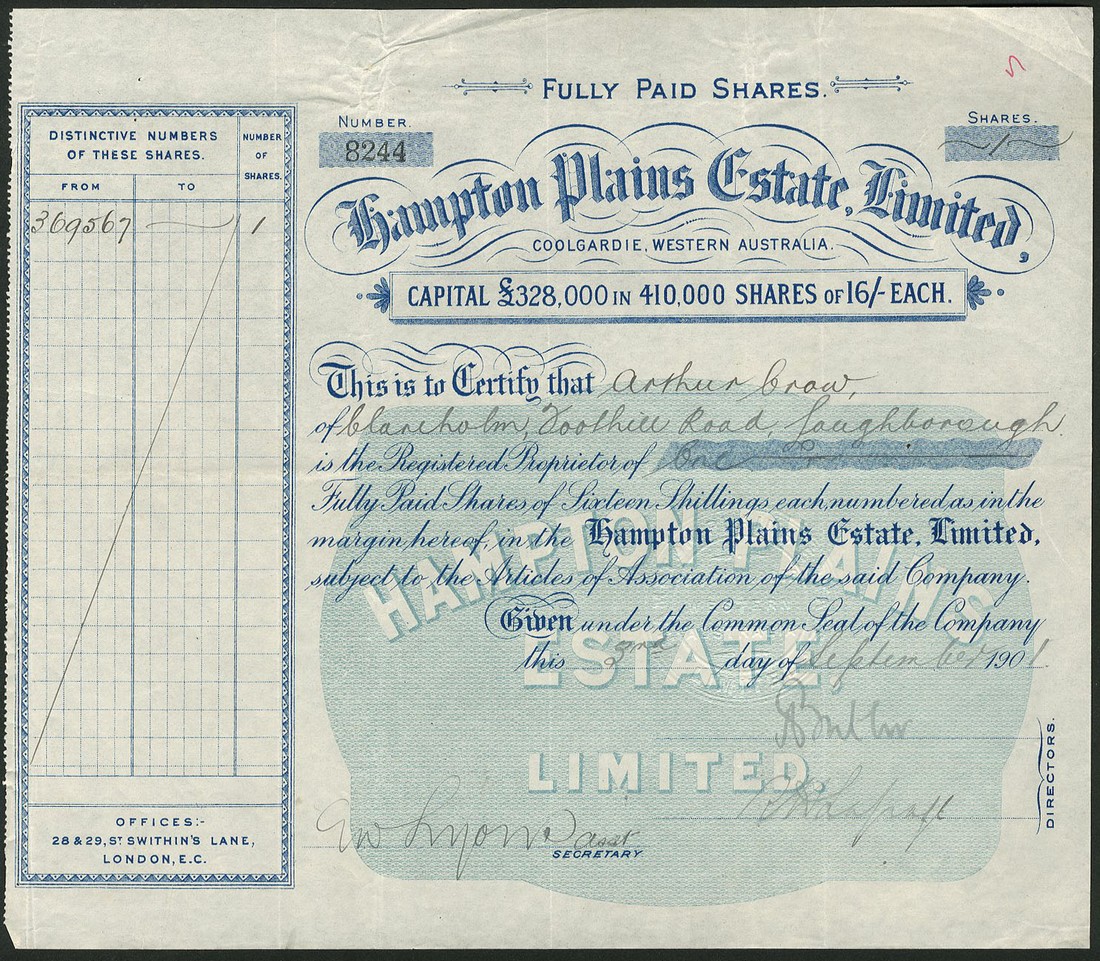 FULLY PAID SHARES.
NUMBER.
8244
SHARES.
1
Hampton Plains Estate, Limited,
COOLGARDIE, WESTERN AUSTRALIA.
CAPITAL £328,000 IN 410,000 SHARES OF 16/- EACH.
DISTINCTIVE NUMBERS OF THESE SHARES.
NUMBER OF SHARES.
FROM
TO
369567
1
This is to Certify that Arthur Crow,
of Clareholm, Toothill Road, Loughborough
is the Registered Proprietor of One
Fully Paid Shares of Sixteen Shillings each, numbered as in the
margin hereof, in the Hampton Plains Estate, Limited,
subject to the Articles of Association of the said Company.
Given under the Common Seal of the Company
this day of September 1901.
HAMPTON PLAINS
ESTATE
LIMITED.
DIRECTORS.
asst
SECRETARY
OFFICES:-
28 & 29, ST SWITHIN'S LANE,
LONDON, E.C.